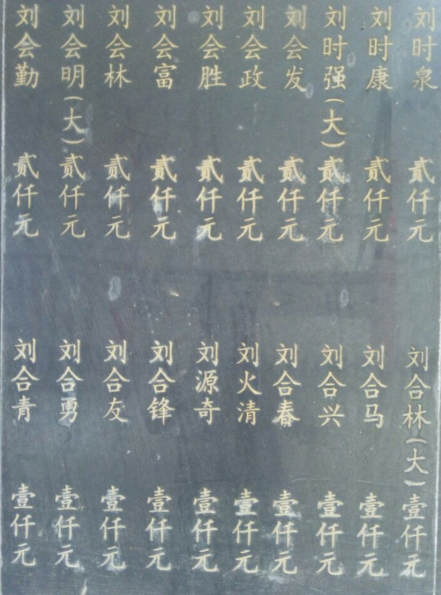 刘时泉 贰仟元
刘时康 贰仟元
刘时强(大) 贰仟元
刘会发 贰仟元
刘会政 贰仟元
刘会胜 贰仟元
刘会富 贰仟元
刘会林 贰仟元
刘会明(大) 贰仟元
刘会勤 贰仟元
刘合林(大) 壹仟元
刘合马 壹仟元
刘合兴 壹仟元
刘合春 壹仟元
刘火清 壹仟元
刘源奇 壹仟元
刘合锋 壹仟元
刘合友 壹仟元
刘合勇 壹仟元
刘合青 壹仟元